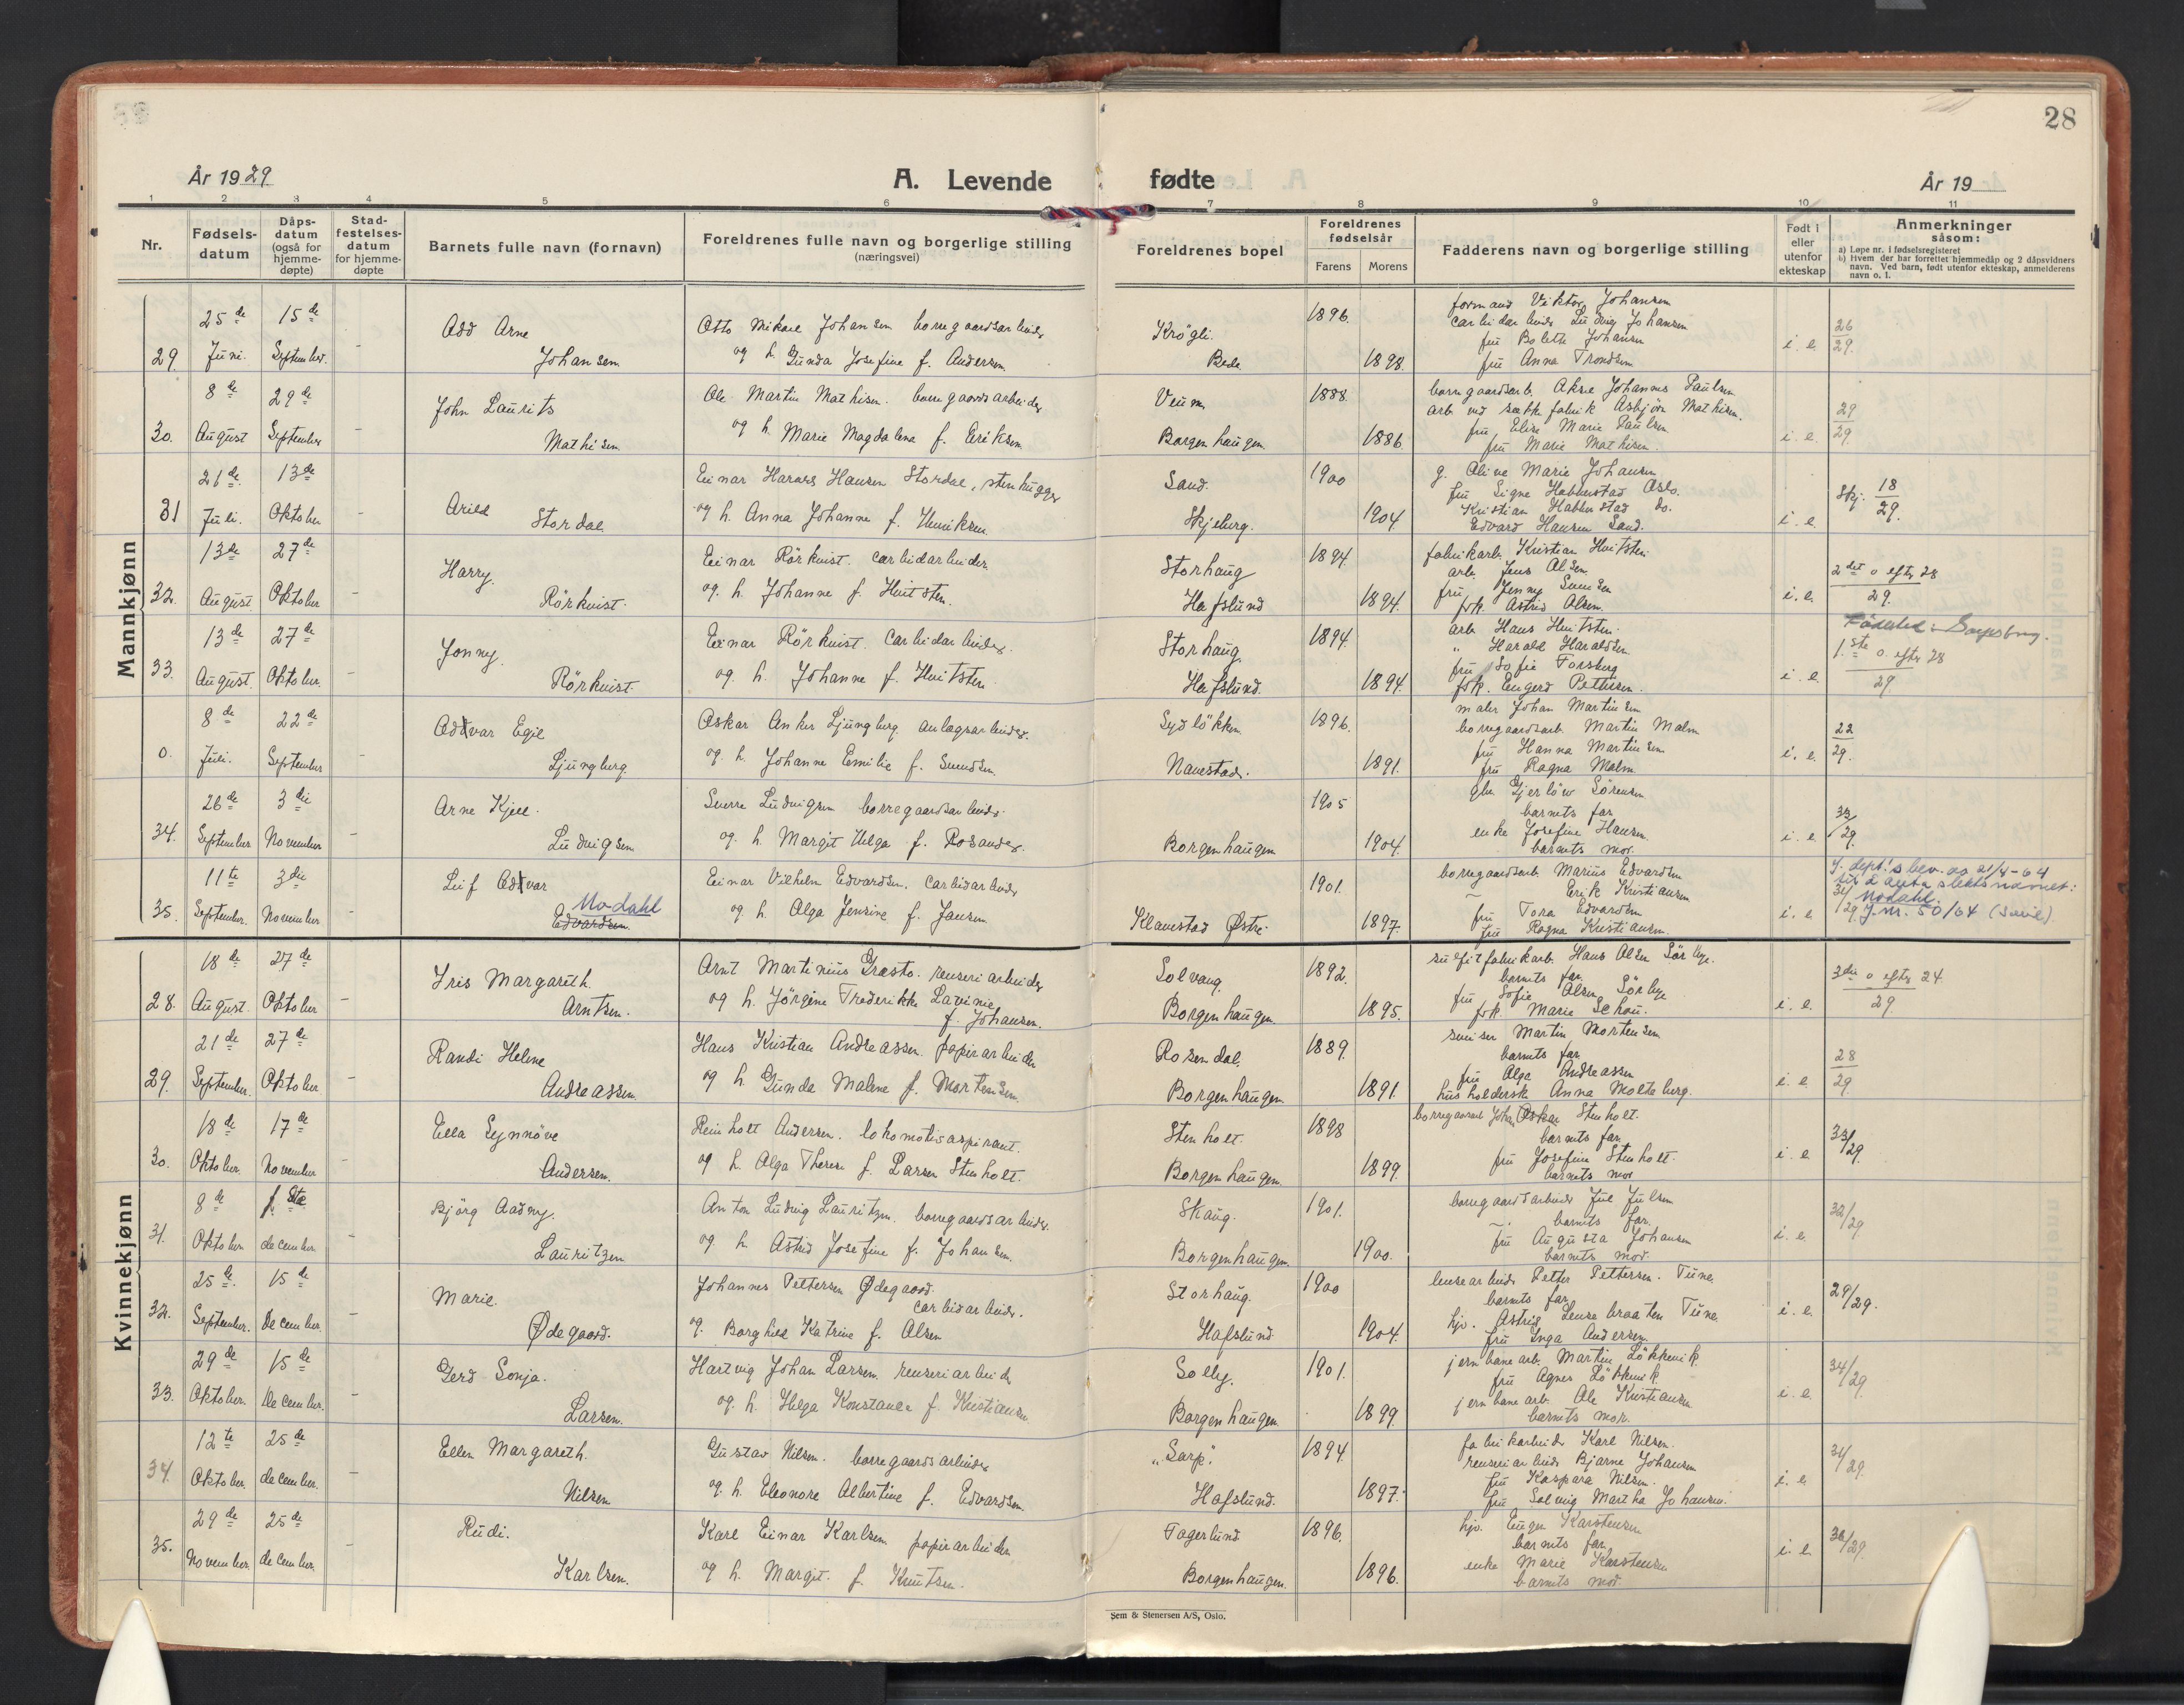 28
År 1929.
A. Levende
fødte
År 19
1 2 3 4 5 6 7 8 9 10 11
Nr.
Fødsels-
datum
Dåps-
datum
(også for
hjemme-
døpte)
Stad-
festelses-
datum
for hjemme-
døpte
Barnets fulle navn (fornavn)
Foreldrenes fulle navn og borgerlige stilling
(næringsvei)
Foreldrenes bopel
Foreldrenes
fødselsår
Farens
Morens
Fadderens navn og borgerlige stilling
Født i
eller
utenfor
ekteskap
Anmerkninger
såsom:
a) Løpe nr. i fødselsregisteret
b) Hvem der har forrettet hjemmedåp og 2 dåpsvidners
navn. Ved barn, født utenfor ekteskap, anmelderens
navn o. l.
Mannkjønn
25de 15de Odd Arne Otto Mikael Johansen borregaardsarbeider Krøgli. 1896. formand Viktor Johansen
carbidarbeider Ludvig Johansen
fru Bolette Johansen
29. Juni. September. - Johansen og h. Gunda Josefine f. Andersen Bede 1898. fru Anna Trondsen i. e. 26/29.
8de 29de John Laurits Ole Martin Mathisen. borregaardsarbeider Veum 1888. borregaardsarb. Aksel Johannes Paulsen
arb. ved sækkfabrik Asbjørn Mathisen.
fru Elise Marie Paulsen
30. August September - Mathisen og h. Marie Magdalena f. Eriksen Borgenhaugen 1886. fru Marie Mathisen. i. e. 29/29.
21de 13de Einar Harald Hansen Stordal, stenhugger Sand. 1900 g. Oline Marie Johansen
Arild fru Signe Habberstad Oslo.
Kristian Habberstad do.
31 Juli. Oktober - Stordal og h. Anna Johanne f. Henriksen Skjeberg. 1904. Edvard Hansen Sand. i. e. Skj. 18/29.
13de 27de Harry. Einar Rörkvist. carbidarbeider. Storhaug 1894. fabrikarb. Kristian Hvitsten
arb. Jens Olsen
fru Jenny
32. August Oktober - Rörkvist. og. h. Johanne f. Hvitsten. Hafslund 1894. frk. Astrid Olsen. i. e. 2det o. efter 28/29.
13de 27de Jonny. Einar Rörkvist. Carbidarbeider. Storhaug 1894. arb. Hans Hvitsten.
" Harald Haraldsen
fru Sofie Forsberg
33. August. Oktober. Rörkvist. og. h. Johanne f. Hvitsten. Hafslund. 1894. frk. Engerd Pettersen. i. e. Sarpsborg.
1ste o. efter 28/29
8de 22de Oddvar Egil Oskar Anker Ljungberg anlægsarbeider. Sydløkken 1896. maler Johan Martinsen
borregaardsarb. Martin Malm
fru Hanna Martinsen
0. Juli. September - Ljungberg. og h. Johanne Emilie f. Svendsen. Navestad. 1891. fru Ragna Malm i. e. 22/29.
26de 3die Arne Kjell. Sverre Ludvigsen borregaardsarbeider. 1905 gbr. Gjerløw Sørensen
barnets far
enke Josefine Hansen.
34. September November - Ludvigsen og. h. Margit Helga f. Rosander. Borgenhaugen 1904. barnets mor. i. e. 33/29.
11te 3die Leif Oddvar Einar Vilhelm Edvardsen. Carbidarbeider 1901. borregaardsarb. Marius Edvardsen
Erik Kristiansen
fru Tora Edvardsen
35. September. November. - Modahl
Edvardsen og h. Olga Jensine f. Jansen Klavestad Østre. 1897. fru Ragna Kristiansen. i. e. J. dept.'s bev. av 21/4-64
til å anta slektsnavnet:
31/29 Modahl.
J.nr. 50/64
Kvinnekjønn
18de 27de Iris Margareth. Arnt Martinius Græsto. renseriarbeider Solvang. 1892. sulfitfabrikarb. Hans Olsen Sørlye.
barnets far
fru Sofie Olsen Sørlye
28. August. Oktober - Arntsen. og h. Jørgine Frederikke Lavinie f. Johansen. Borgenhaugen 1895. frk. Marie Schou. i. e. 3die o efter 24/29.
21de 27de Randi Helene Hans Kristian Andreassen. papirarbeider Rosendal. 1889. Martin Mortensen
barnets far
fru Olga Andreassen
29. September. Oktober - Andreassen. og h. Gunda Malene f. Mortensen Borgenhaugen 1891. husholderske Anna Molteberg. i. e. 28/29
18de 17de Ella Synnøve Reinholt Andersen. lokomotivaspirant. Stenholt. 1898 borregaardsarb. Johan Oskar Stenholt.
barnets far
fru Josefine Stenholt.
30. Oktober. November - Andersen. og h. Olga Therese f. Larsen Stenholt. Borgenhaugen. 1899. barnets mor i. e 33/29.
8de 1ste Bjørg Aadny. Anton Ludvig Lauritzen. borregaardsarbeider. Skaug. 1901. borregaardsarbeider Jul Julsen
barnets far.
fru Augusta Johansen
31. Oktober december. Lauritzen og h. Astrid Josefine f. Johansen. Borgenhaugen. 1900. barnets mor. i. e. 32/29
25de 15de Marie. Johannes Pettersen Ødegaard. carbidarbeider. Storhaug. 1900 lensearbeider Petter Pettersen. Tune.
barnets far
hjv. Astrid Lensebraaten Tune.
32. September. December. - Ødegaard. og. Borghild Katrine f. Olsen Hafslund 1904. fru Inga Andersen i. e. 29/29.
29de 15de Gerd Sonja. Hartvig Johan Larsen. renseriarbeider Solly. 1901. jernbanearb. Martin Løkkevik.
fru Agnes Løkkevik
jernbanearb. Ole Kristiansen
33. Oktober. December. - Larsen. og. h. Helga Konstance f. Kristiansen Borgenhaugen 1899 barnets mor. i. e. 34/29.
12te 25de Ellen Margareth. Gustav Nilsen. borregaardsarbeider "Sarp". 1894. fabrikarbeider Karl Nilsen.
renseriarbeider Bjarne Johansen
fru Kaspara Nilsen.
34. Oktober. december. - Nilsen og. h. Eleonore Albertine f. Edvardsen Hafslund. 1897. fru Solveig Martha Johansen. i. e 31/29.
29de 25de Rudi. Karl Einar Karlsen papirarbeider Fagerlund. 1896. hjv. Eugen Karstensen
barnets far
enke Marie Karstensen
35. November. december. Karlsen. og h. Margit. f. Knutsen. Borgenhaugen. 1896. barnets mor. i. e. 36/29.
Sem & Stenersen A/S, Oslo.